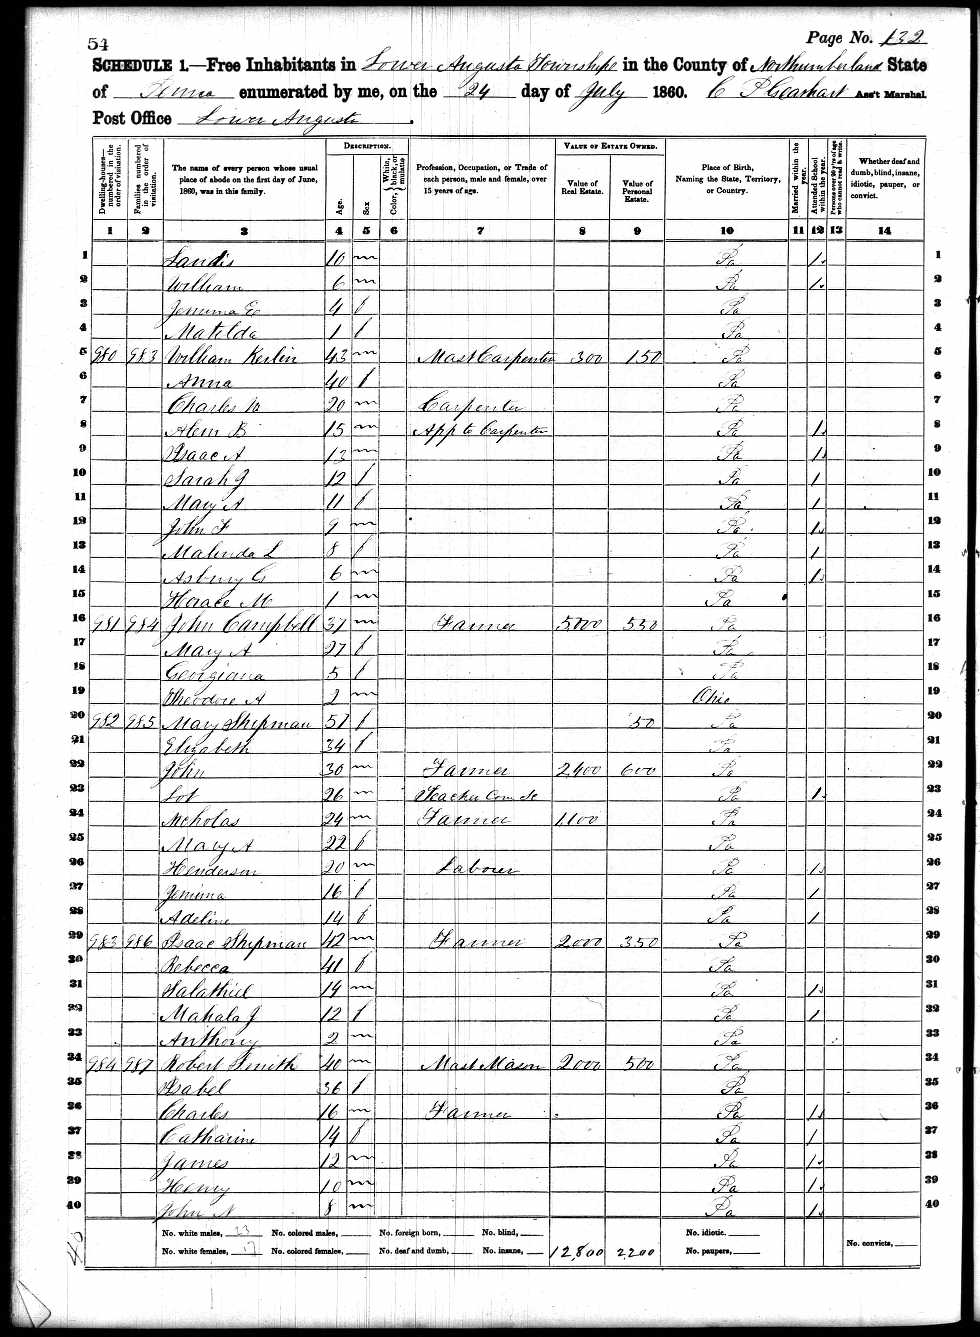 54
Page No. 132
SCHEDULE 1.—Free Inhabitants in Lower Augusta Township in the County of Northumberland State
of Penna enumerated by me, on the 24 day of July 1860. C P Gearhart Ass't Marshal.
Post Office Lower Augusta.
Dwelling-houses—numbered in the order of visitation. Families numbered in the order of visitation. The name of every person whose usual place of abode on the first day of June, 1860, was in this family. DESCRIPTION. Age. Sex Color, White, black, or mulatto Profession, Occupation, or Trade of each person, male and female, over 15 years of age. VALUE OF ESTATE OWNED. Value of Real Estate. Value of Personal Estate. Place of Birth, Naming the State, Territory, or Country. Married within the year. Attended School within the year. Persons over 20 y'rs of age who cannot read & write. Whether deaf and dumb, blind, insane, idiotic, pauper, or convict.
1 2 3 4 5 6 7 8 9 10 11 12 13 14
1 Landis 10 m Pa 1 1
2 William 6 m Pa 1 2
3 Jemima E 4 f Pa 3
4 Matilda 1 f Pa 4
5 980 983 William Kerlin 43 m Mast Carpenter 300 150 Pa 5
6 Anna 40 f Pa 6
7 Charles W 20 m Carpenter Pa 7
8 Alem B 15 m App to Carpenter Pa 1 8
9 Isaac A 13 m Pa 1 9
10 Sarah J 12 f Pa 1 10
11 Mary A 11 f Pa 1 11
12 John F 9 m Pa 1 12
13 Malinda L 8 f Pa 1 13
14 Asbury G 6 m Pa 1 14
15 Horace M 1 m Pa 15
16 981 984 John Campbell 37 m Farmer 5000 550 Pa 16
17 Mary A 27 f Pa 17
18 Georgiana 5 f Pa 18
19 Theodore A 2 m Ohio 19
20 982 985 Mary Shipman 57 f 50 Pa 20
21 Elizabeth 34 f Pa 21
22 John 30 m Farmer 2,400 600 Pa 22
23 Lot 26 m Teacher Com Sc Pa 1 23
24 Nicholas 24 m Farmer 1,100 Pa 24
25 Mary A 22 f Pa 25
26 Henderson 20 m Laborer Pa 1 26
27 Jemima 16 f Pa 1 27
28 Adeline 14 f Pa 1 28
29 983 986 Isaac Shipman 42 m Farmer 2000 350 Pa 29
30 Rebecca 41 f Pa 30
31 Salathiel 14 m Pa 1 31
32 Mahala J 12 f Pa 1 32
33 Anthony 2 m Pa 33
34 984 987 Robert Smith 40 m Mast Mason 2000 500 Pa 34
35 Isabel 36 f Pa 35
36 Charles 16 m Farmer Pa 1 36
37 Catharine 14 f Pa 1 37
38 James 12 m Pa 1 38
39 Henry 10 m Pa 1 39
40 John N 8 m Pa 1 40
No. white males, 23 No. colored males, No. foreign born, No. blind, No. idiotic.
No. white females, 17 No. colored females, No. deaf and dumb, No. insane, 12,800 2,200 No. paupers, No. convicts,
40